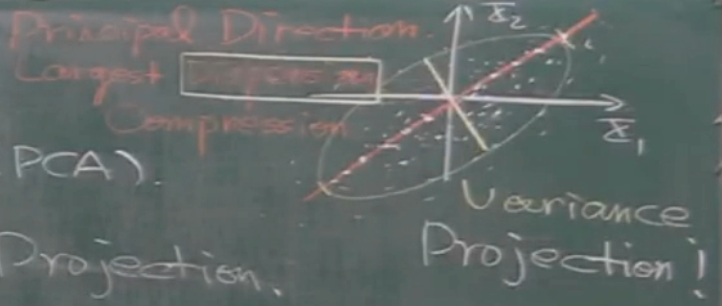 Principal Direction.
Largest Dispersion
Compression
PCA).
Projection.
x̄₂
x̄₁
Variance
Projection!